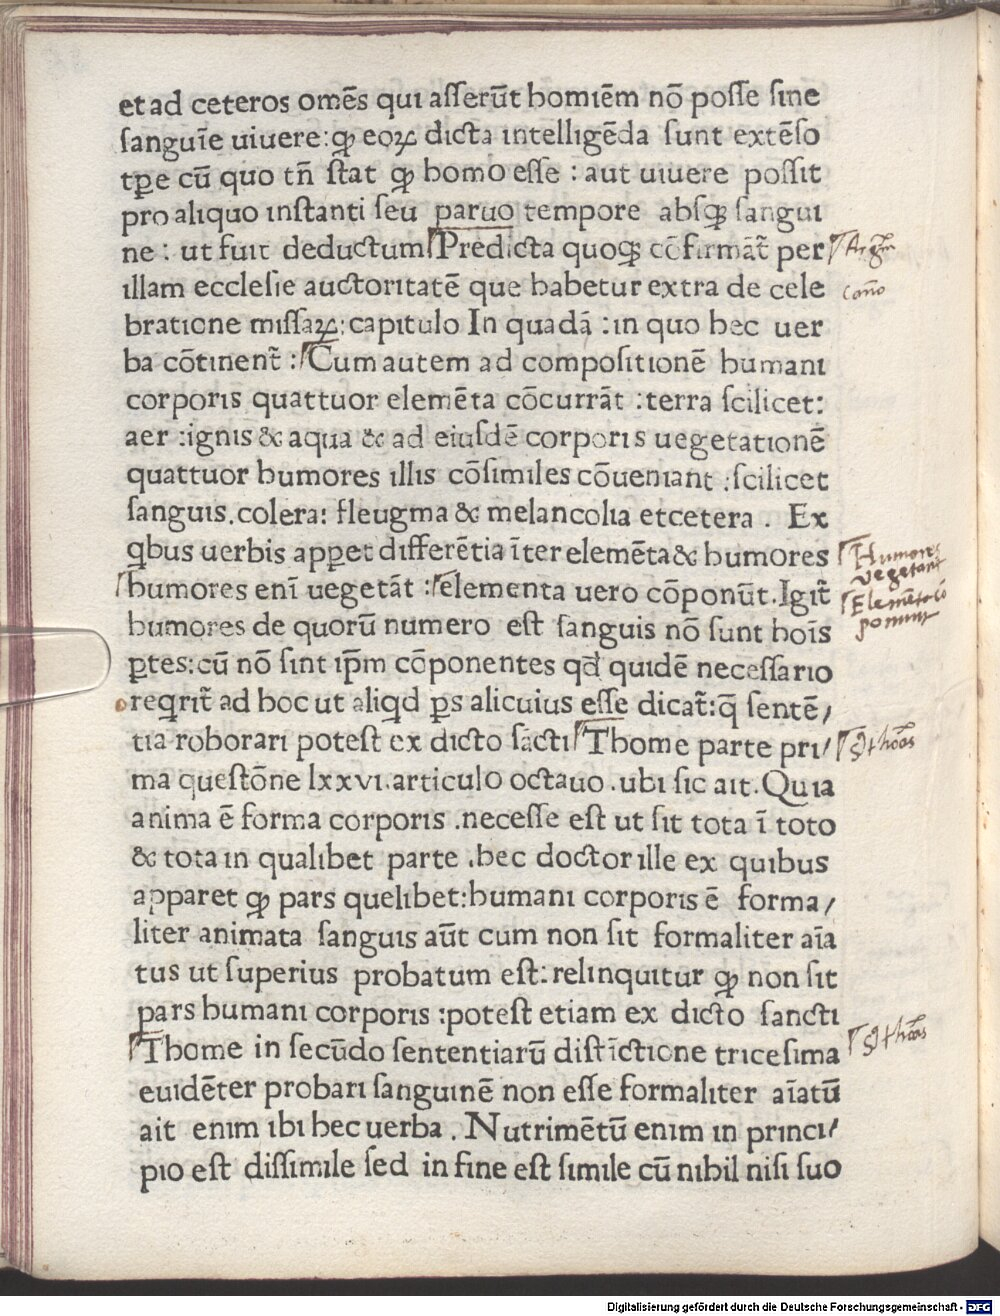 et ad ceteros omēs qui aſſerūt homiēm nō poſſe ſine
ſanguīe uiuere: ꝙ eoꝝ dicta intelligēda ſunt extēſo
tꝑe cū quo tñ ſtat ꝙ homo eſſe : aut uiuere poſſit
pro aliquo inſtanti ſeu paruo tempore abſqꝫ ſangui
ne : ut fuit deductum Predicta quoqꝫ cōfirmāt̃ per
illam eccleſie auctoritatē que habetur extra de cele
bratione miſſaꝝ: capitulo In quadā : in quo hec uer
ba cōtinent̃ : Cum autem ad compoſitionē humani
corporis quattuor elemēta cōcurrāt : terra ſcilicet:
aer : ignis & aqua & ad eiuſdē corporis uegetationē
quattuor humores illis cōſimiles cōueniant : ſcilicet
ſanguis. colera: fleugma & melancolia etcetera . Ex
qbus uerbis apꝑet differētia īter elemēta & humores
humores enī uegetāt : elementa uero cōponūt. Igit̃
humores de quorū numero eſt ſanguis nō ſunt hoīs
ꝑtes: cū nō ſint ip̄m cōponentes qd̄ quidē neceſſario
reqrit̃ ad hoc ut aliqd ꝑs alicuius eſſe dicat̃: q̄ ſentē/
tia roborari poteſt ex dicto ſācti Thome parte pri/
ma queſtōne lxxvi. articulo octauo . ubi ſic ait. Quia
anima ē forma corporis . neceſſe eſt ut ſit tota ī toto
& tota in qualibet parte . hec doctor ille ex quibus
apparet ꝙ pars quelibet: humani corporis ē forma/
liter animata ſanguis aūt cum non ſit formaliter aīa
tus ut ſuperius probatum eſt: relinquitur ꝙ non ſit
pars humani corporis : poteſt etiam ex dicto ſancti
Thome in ſecūdo ſententiarū diſtīctione triceſima
euidēter probari ſanguinē non eſſe formaliter aīatū
ait enim ibi hec uerba . Nutrimētū enim in princi/
pio eſt diſſimile ſed in fine eſt ſimile cū nihil niſi ſuo
Humores
vegetant
Elemēta cō
ponunt
S. thōas
S. thōas
Digitalisierung gefördert durch die Deutsche Forschungsgemeinschaft - DFG